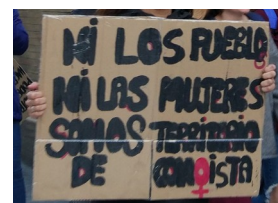 NI LOS PUEBLO
NI LAS MUJERES
SOMOS TERRITORIO
DE CONQISTA